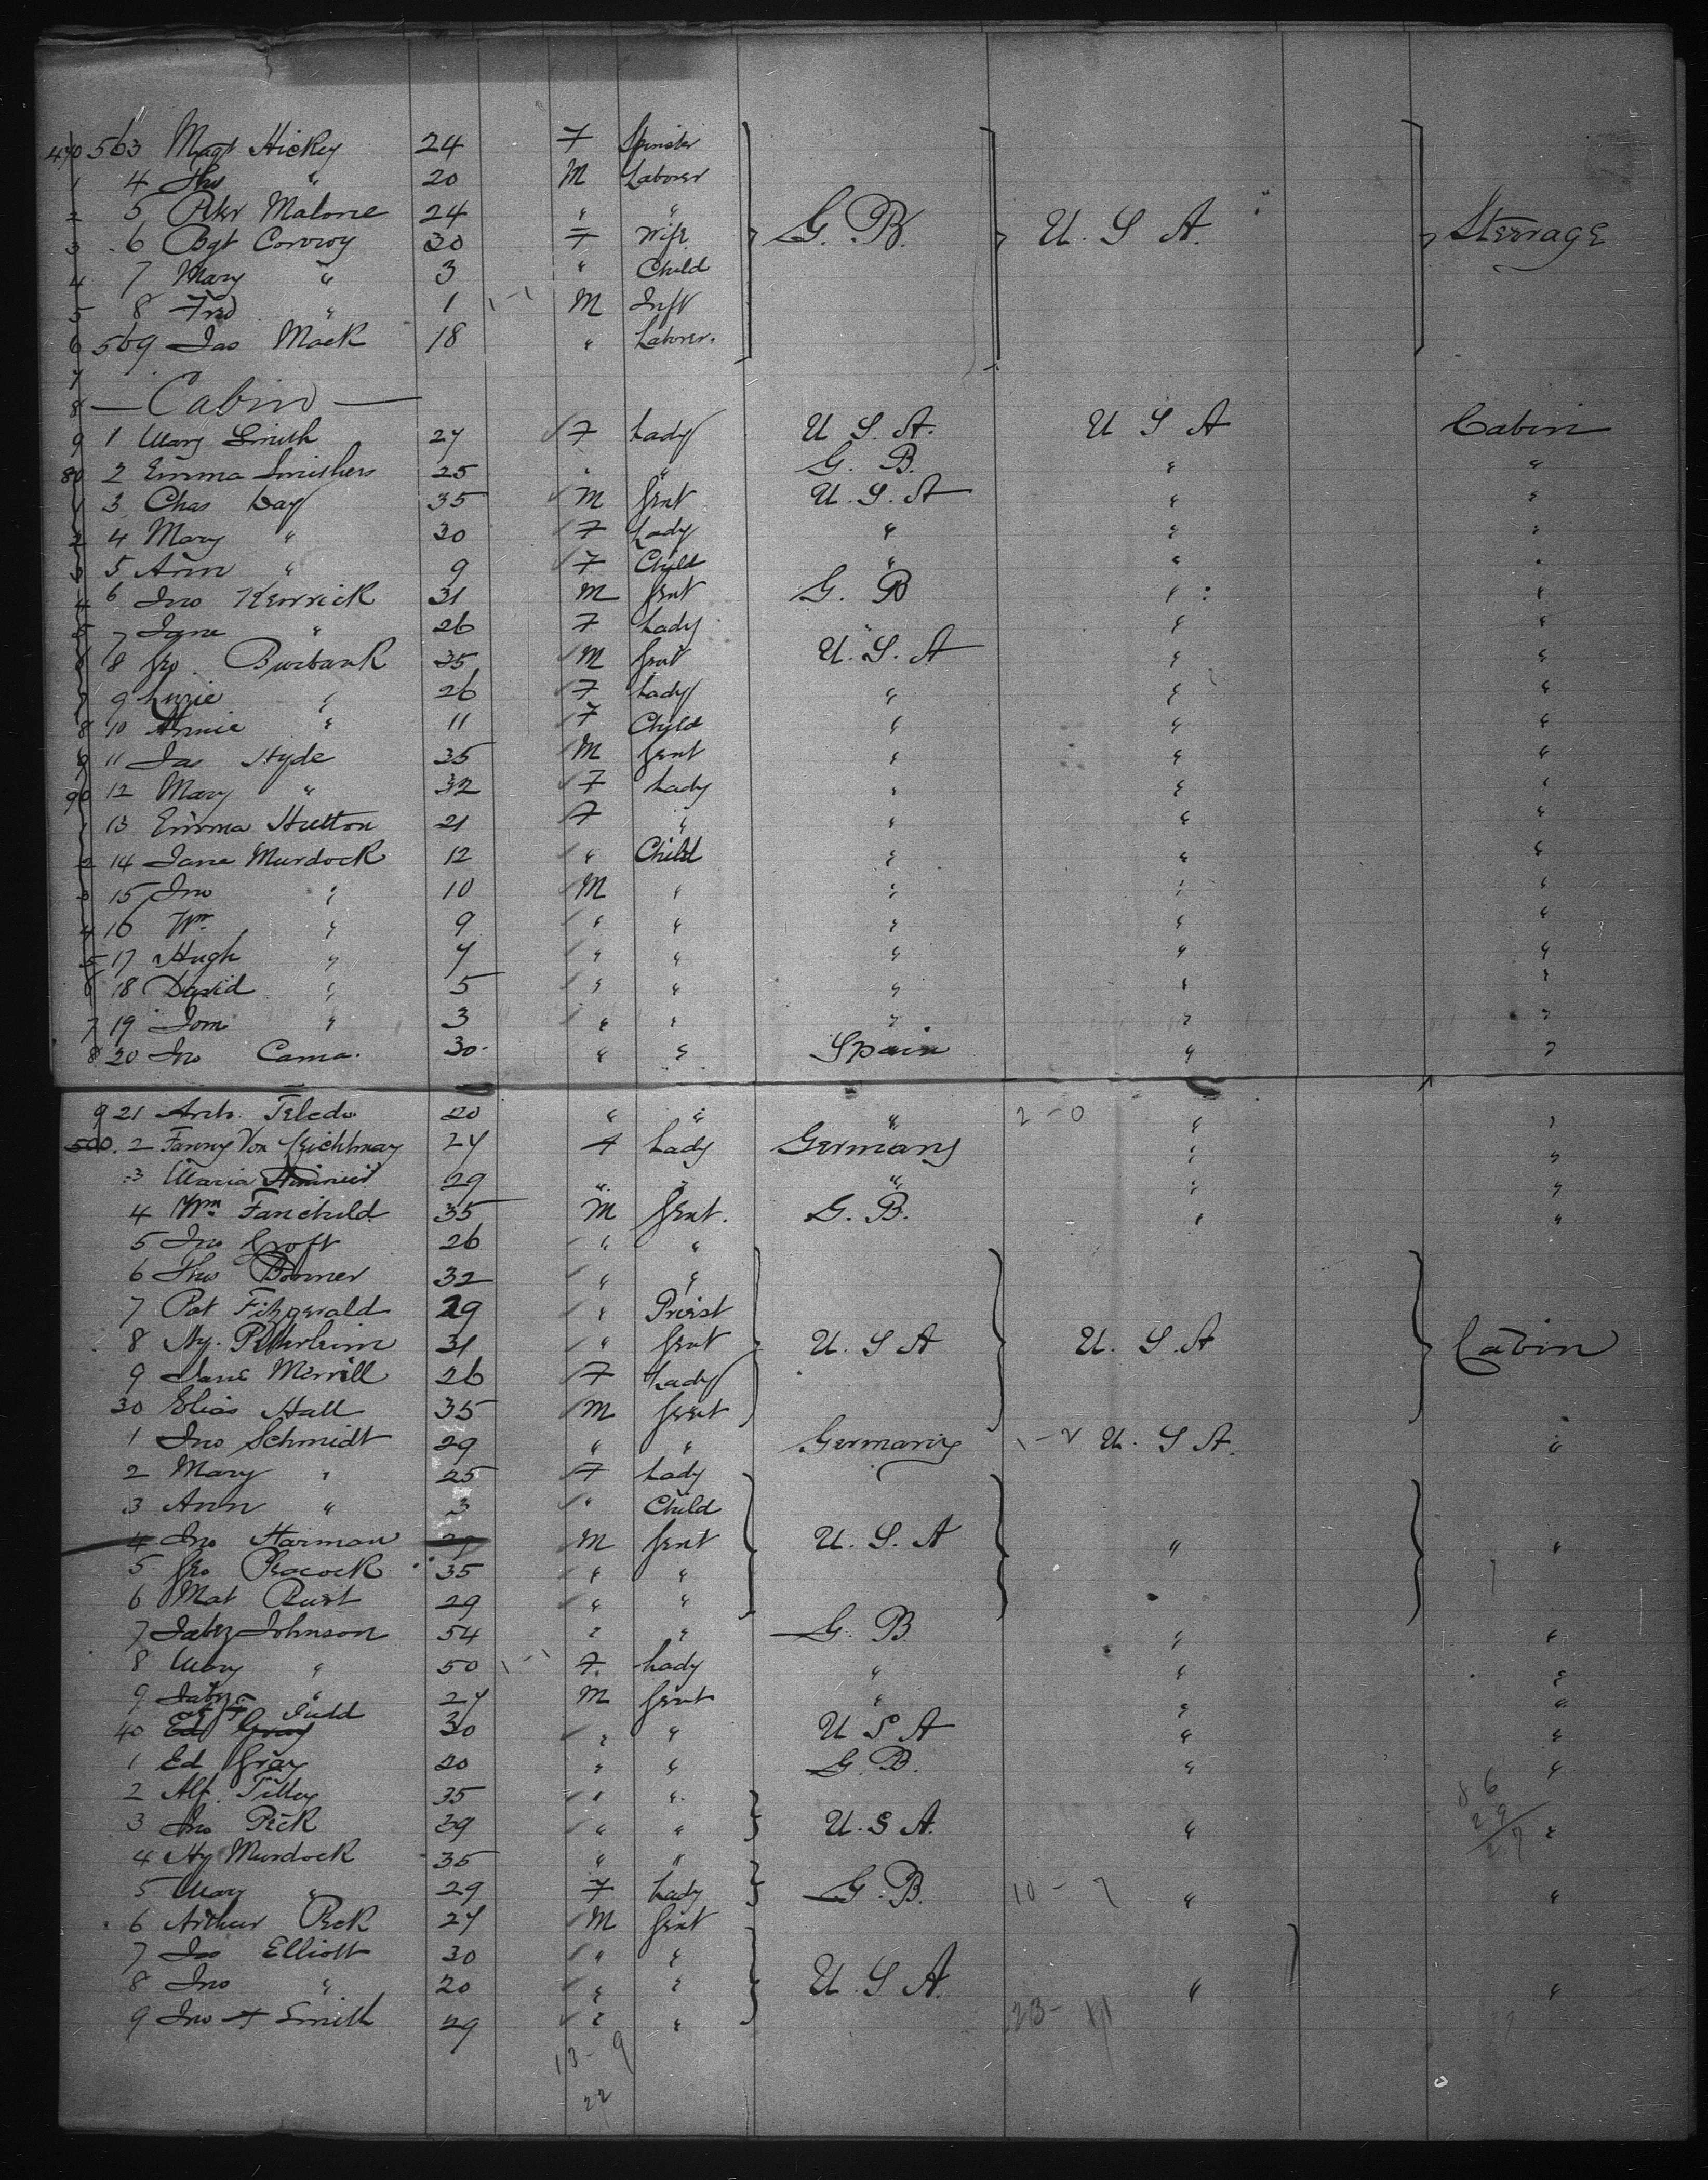 470 563 Magt Hickey 24 F Spinster
1 4 Thos " 20 M Laborer
2 5 Peter Malone 24 " "
3 6 Bgt Conroy 30 F Wife G. B. U. S A. Steerage
4 7 Mary " 3 " Child
5 8 Fred " 1 M Inft
6 569 Jas Mack 18 " Laborer.
7
8 — Cabin —
9 1 Mary Smith 27 F Lady U S. A. U S A Cabin
80 2 Emma 25 " " G. B. " "
1 3 Chas Day 35 M Gent U. S. A " "
2 4 Mary " 30 F Lady " " "
3 5 Ann " 9 F Child " " "
4 6 Jno Kerrick 31 M Gent G. B " "
5 7 Jane " 26 F Lady " " "
6 8 Geo. Burbank 35 M Gent U. S. A " "
7 9 Lizzie " 26 F Lady " " "
8 10 Annie " 11 F Child " " "
9 11 Jas Hyde 35 M Gent " " "
90 12 Mary " 32 F Lady " " "
1 13 Emma Hutton 21 F " " " "
2 14 Jane Murdock 12 " Child " " "
3 15 Jno " 10 M " " " "
4 16 Wm " 9 " " " " "
5 17 Hugh " 7 " " " " "
6 18 David " 5 " " " " "
7 19 Tom " 3 " " " " "
8 20 Jno Cama. 30. " " Spain " "
9 21 Anto. Toledo 20 " " " 2 - 0 " "
500. 2 Fanny Von 27 F Lady Germany " "
3 Maria 29 " " " " "
4 Wm Fanchild 35 M Gent. G. B. " "
5 Jno Croft 26 " "
6 Thos Bonner 32 " "
7 Pat Fitzgerald 29 " Priest
8 Hy. 31 " Gent U. S A U. S. A Cabin
9 Jane Merrill 26 F Lady
30 Elias Hall 35 M Gent
1 Jno Schmidt 29 " " Germany U. S A. "
2 Mary " 25 F Lady
3 Ann " 3 " Child
4 Jno Harman M Gent U. S. A " "
5 Geo Peacock 35 " "
6 Mat Rust 29 " "
7 Jabez Johnson 54 " " G. B " "
8 Mary " 50 F. Lady " " "
9 Jabez " 27 M Gent " " "
40 Ed Gray Judd 30 " " U S A " "
1 Ed Gray 20 " " G. B. " "
2 Alf. Tilley 35 " "
3 Jno Peck 39 " " U. S A. " "
4 Hy Murdock 35 " "
5 Mary " 29 F Lady G. B. 10 - 7 " "
6 Arthur Peck 27 M Gent
7 Jas Elliott 30 " "
8 Jno " 20 " " U. S A. " "
9 Jno Smith 29 " " 23- 11
13 - 9
22